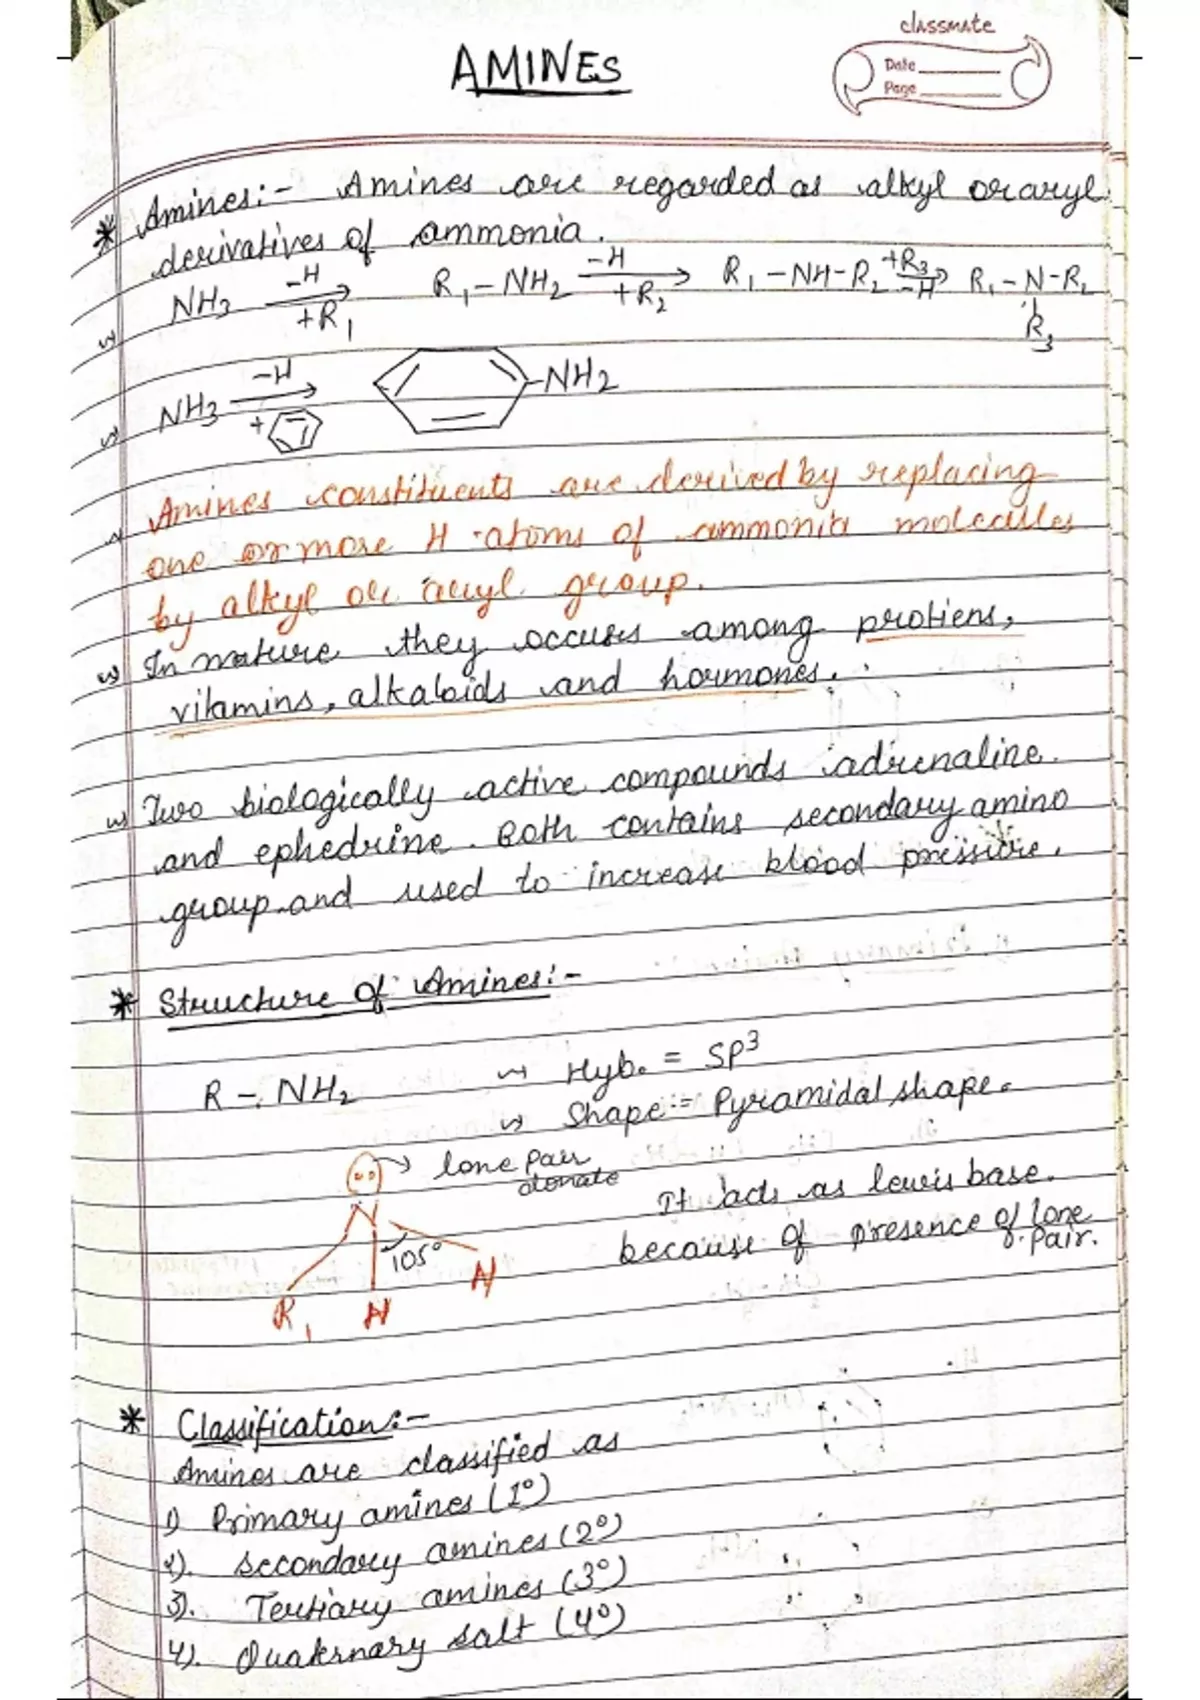 classmate
Date
Page
AMINES
* Amines:- Amines are regarded as alkyl or aryl
derivatives of ammonia.
NH3 -H +R1 → R1-NH2 -H +R2 → R1-NH-R2 +R3 -H → R1-N-R2
R3
NH3 -H + → -NH2
Amines constituents are derived by replacing
one or more H-atoms of ammonia molecules
by alkyl or aryl group.
In nature they occurs among protiens,
vitamins, alkaloids and hormones.
Two biologically active compounds adrenaline
and ephedrine. Both contains secondary amino
group and used to increase blood pressure.
* Structure of Amines:-
R-NH2 → Hyb. = SP3
→ Shape:- Pyramidal shape.
→ lone pair
donate
It acts as lewis base.
because of presence of lone
pair.
N
105°
R1 H H
* Classification:-
Amines are classified as
1) Primary amines (1°)
2). Secondary amines (2°)
3). Tertiary amines (3°)
4). Quaternary salt (4°)